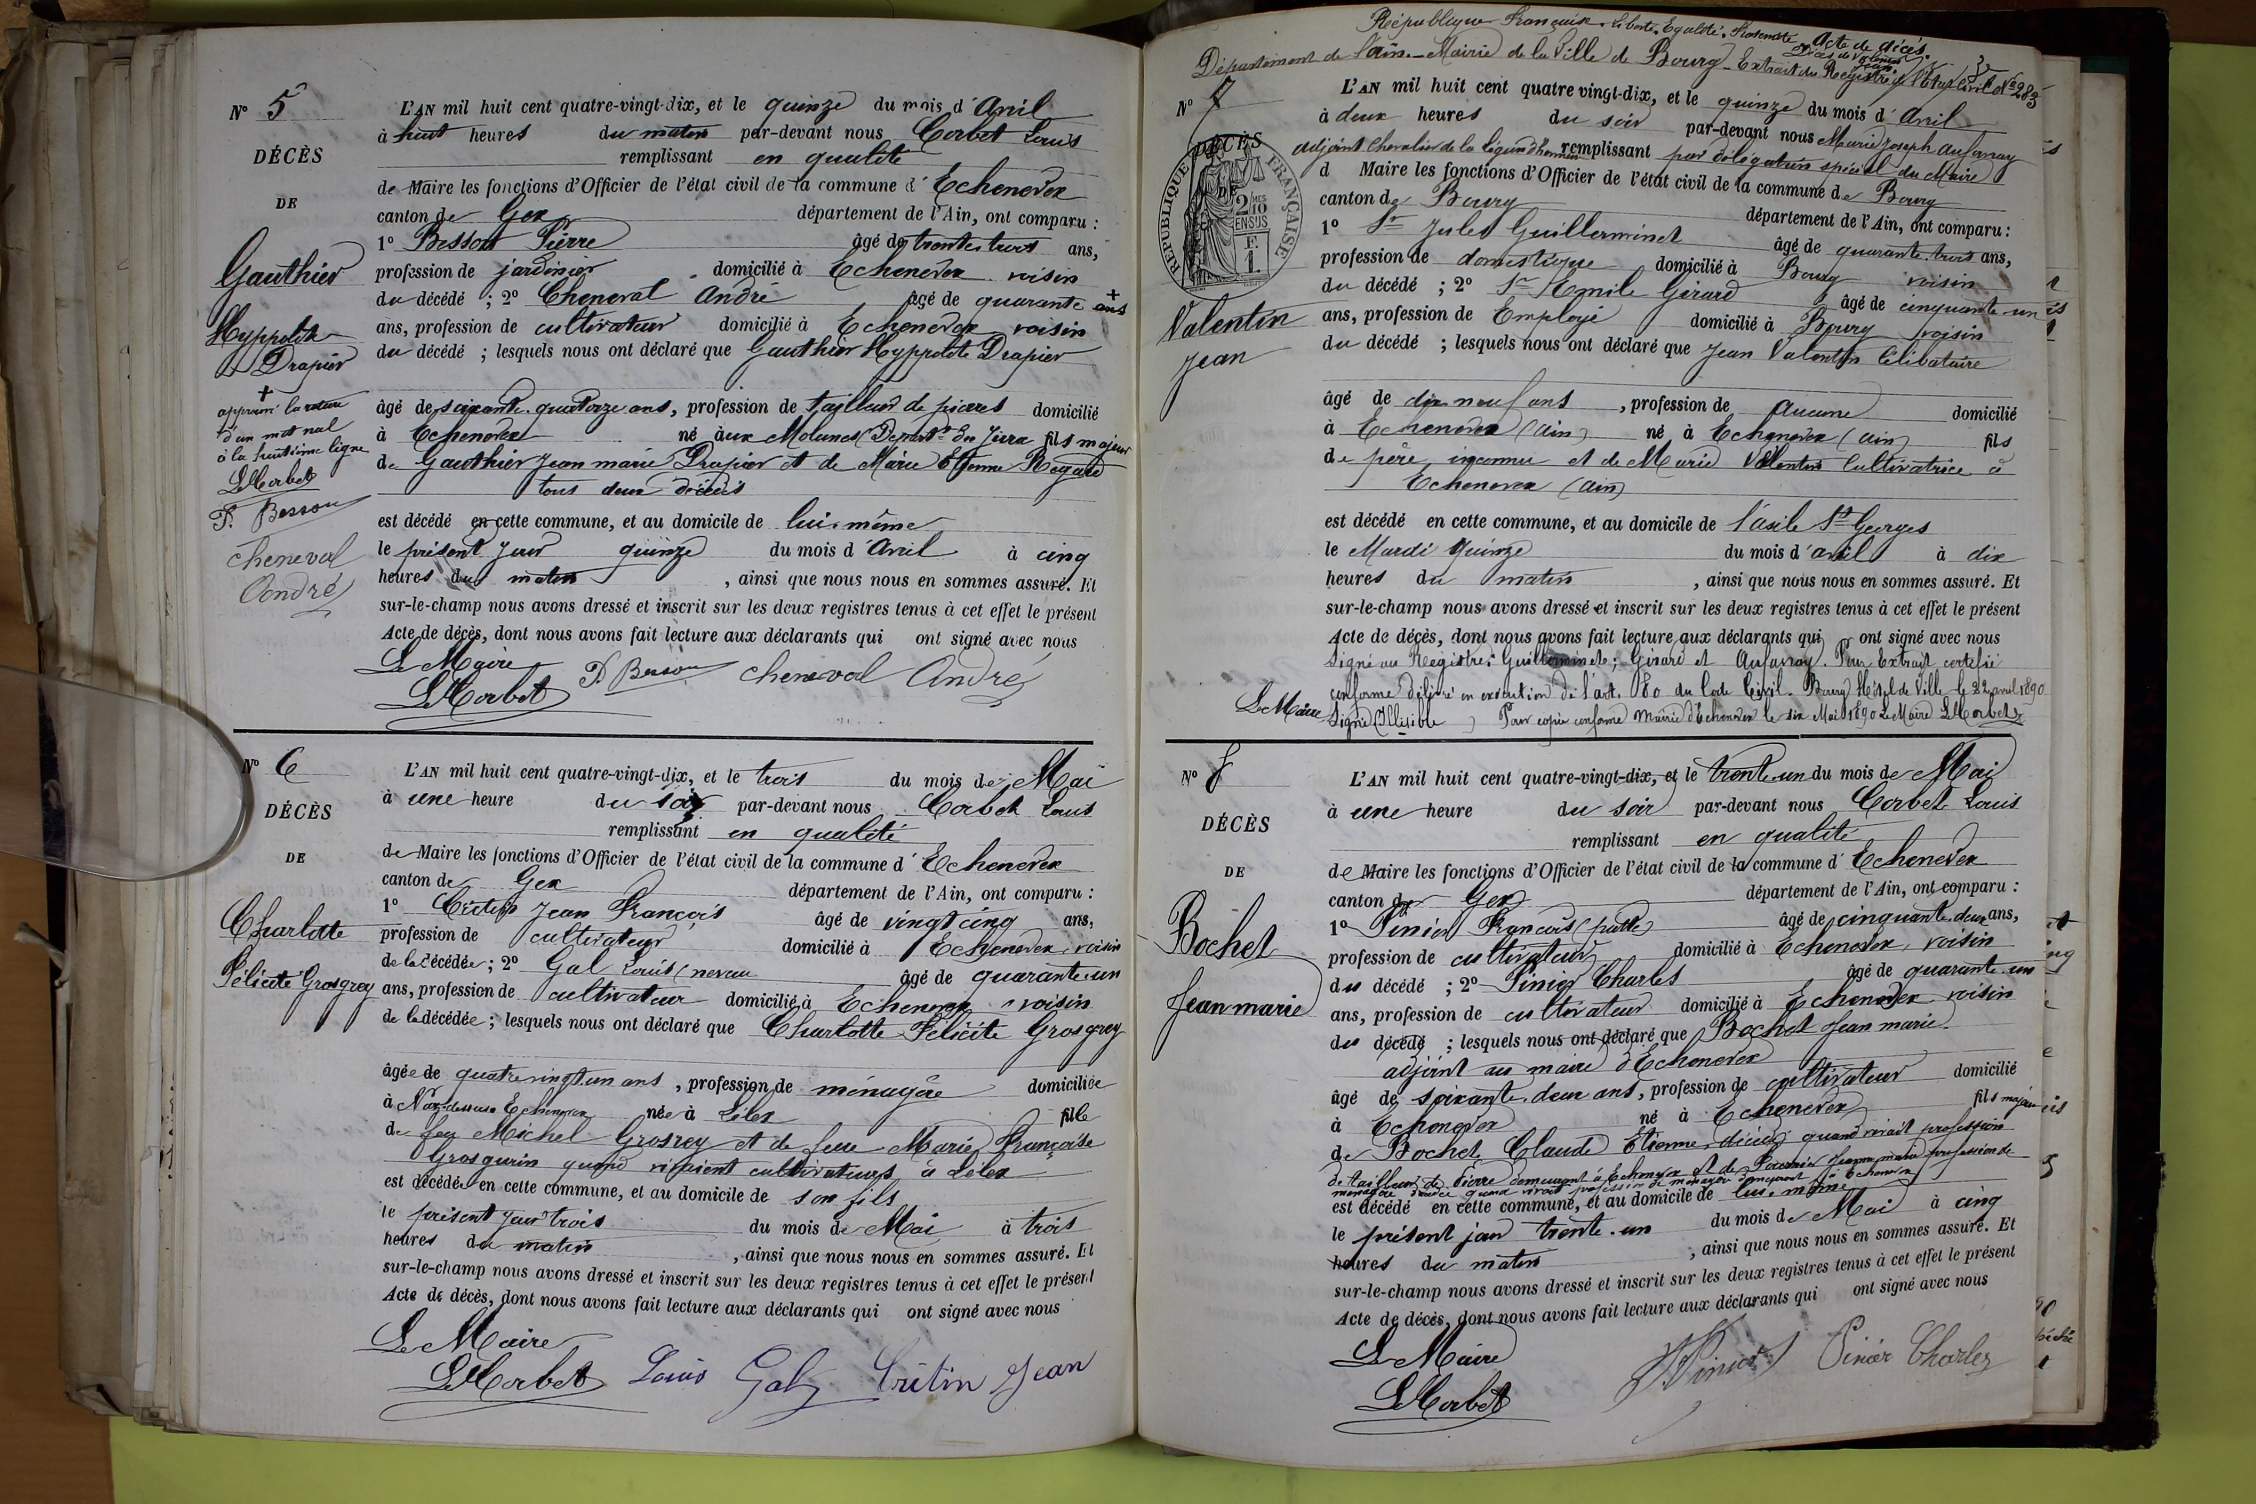 N° 5
DÉCÈS
DE
Gauthier
Hyppolite
Drapier
+
approuvé la rature
d'un mot nul
à la huitième ligne
L Corbet
P. Besson
Cheneval
André
L'AN mil huit cent quatre-vingt-dix, et le quinze du mois d'Avril
à huit heures du matin par-devant nous Corbet Louis
remplissant en qualité
de Maire les fonctions d'Officier de l'état civil de la commune d'Echenevex
canton de Gex département de l'Ain, ont comparu :
1° Besson Pierre âgé de trente trois ans,
profession de jardinier domicilié à Echenevex voisin
du décédé ; 2° Cheneval André âgé de quarante + ans
ans, profession de cultivateur domicilié à Echenevex voisin
du décédé ; lesquels nous ont déclaré que Gauthier Hyppolite Drapier
âgé de soixante quatorze ans, profession de tailleur de pierres domicilié
à Echenevex né aux Molunes (Départ.t du Jura fils majeur
de Gauthier Jean marie Drapier et de Marie Etienne Regard
tous deux décédés
est décédé en cette commune, et au domicile de lui-même
le présent jour quinze du mois d'Avril à cinq
heures du matin , ainsi que nous nous en sommes assuré. Et
sur-le-champ nous avons dressé et inscrit sur les deux registres tenus à cet effet le présent
Acte de décès, dont nous avons fait lecture aux déclarants qui ont signé avec nous
Le Maire
L Corbet P. Besson Cheneval André
N° 6
DÉCÈS
DE
Charlotte
Félicité Grosgrey
L'AN mil huit cent quatre-vingt-dix, et le trois du mois de Mai
à une heure du soir par-devant nous Corbet Louis
remplissant en qualité
de Maire les fonctions d'Officier de l'état civil de la commune d'Echenevex
canton de Gex département de l'Ain, ont comparu :
1° Critin Jean François âgé de vingt cinq ans,
profession de cultivateur domicilié à Echenevex, voisin
de la décédée ; 2° Gal Louis (neveu âgé de quarante-un
ans, profession de cultivateur domicilié à Echenevex voisin
de la décédée ; lesquels nous ont déclaré que Charlotte Félicité Grosgrey
âgée de quatre vingt un ans , profession de ménagère domiciliée
à Naz-dessus Echenevex née à Lélex fille
de feu Michel Grosrey et de feue Marie Françoise
Grosgurin quand vivaient cultivateurs à Lélex
est décédée en cette commune, et au domicile de son fils
le présent jour trois du mois de Mai à trois
heures du matin , ainsi que nous nous en sommes assuré. Et
sur-le-champ nous avons dressé et inscrit sur les deux registres tenus à cet effet le présent
Acte de décès, dont nous avons fait lecture aux déclarants qui ont signé avec nous
Le Maire
L Corbet Louis Gal Critin Jean
République Française. Liberté. Egalité. Fraternité Acte de décès.
Département de l'Ain. - Mairie de la Ville de Bourg - Extrait du Registre de l'Etat Civil N° 283
N° 7
DÉCÈS
DE
RÉPUBLIQUE FRANÇAISE
2/10 EN SUS
1 F.
Valentin
Jean
L'AN mil huit cent quatre vingt-dix, et le quinze du mois d'Avril
à deux heures du soir par-devant nous Marie Joseph Aufavray
adjoint Chevalier de la Légion d'honneur remplissant par délégation spécial du Maire
d Maire les fonctions d'Officier de l'état civil de la commune de Bourg
canton de Bourg département de l'Ain, ont comparu :
1° Sr Jules Guillerminet âgé de quarante trois ans,
profession de domestique domicilié à Bourg voisin
du décédé ; 2° Sr Emile Girard âgé de cinquante un
ans, profession de Employé domicilié à Bourg voisin
du décédé ; lesquels nous ont déclaré que Jean Valentin Célibataire
âgé de dix neuf ans , profession de Aucune domicilié
à Echenevex (Ain) né à Echenevex (Ain) fils
de père inconnu et de Marie Valentin Cultivatrice à
Echenevex (Ain)
est décédé en cette commune, et au domicile de l'asile St Georges
le Mardi quinze du mois d'avril à dix
heures du matin , ainsi que nous nous en sommes assuré. Et
sur-le-champ nous avons dressé et inscrit sur les deux registres tenus à cet effet le présent
Acte de décès, dont nous avons fait lecture aux déclarants qui ont signé avec nous
Signé au Registre: Guillerminet; Girard et Aufavray. Pour Extrait certifié
conforme délivré en exécution de l'art. 80 du Code Civil. Bourg Hôtel de Ville le 22 avril 1890
Le Maire Signé (Illisible) Pour copie conforme Mairie d'Echenevex le six Mai 1890 Le Maire L Corbet
N° 8
DÉCÈS
DE
Bochet
Jean marie
L'AN mil huit cent quatre-vingt-dix, et le trente-un du mois de Mai
à une heure du soir par-devant nous Corbet Louis
remplissant en qualité
de Maire les fonctions d'Officier de l'état civil de la commune d'Echenevex
canton de Gex département de l'Ain, ont comparu :
1° Pinier François âgé de cinquante deux ans,
profession de cultivateur domicilié à Echenevex, voisin
du décédé ; 2° Pinier Charles âgé de quarante-un
ans, profession de cultivateur domicilié à Echenevex voisin
du décédé ; lesquels nous ont déclaré que Bochet Jean marie
adjoint au maire d'Echenevex
âgé de soixante deux ans, profession de cultivateur domicilié
à Echenevex né à Echenevex fils majeur
de Bochet Claude Etienne, décédé quand vivait profession
de tailleur de Pierre demeurant à Echenevex et de Jeanne marie profession de
ménagère décédée quand vivait profession de ménagère demeurant à Echenevex
est décédé en cette commune, et au domicile de lui-même
le présent jour trente-un du mois de Mai à cinq
heures du matin , ainsi que nous nous en sommes assuré. Et
sur-le-champ nous avons dressé et inscrit sur les deux registres tenus à cet effet le présent
Acte de décès, dont nous avons fait lecture aux déclarants qui ont signé avec nous
Le Maire
L Corbet F. Pinier Pinier Charles